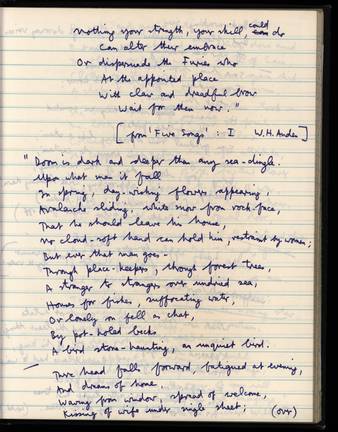 Nothing your strength, your skill, could do
Can alter their embrace
Or dispersuade the Furies who
At the appointed place
With claw and dreadful brow
Wait for them now."
[from 'Five Songs' : I W.H. Auden]
"Doom is dark and deeper than any sea-dingle.
Upon what man it fall
In spring, day-wishing flowers appearing,
Avalanche sliding, white snow from rock-face,
That he should leave his house,
No cloud-soft hand can hold him, restraint by women;
But ever that man goes -
Through place-keepers, through forest trees,
A stranger to strangers over undried sea,
Houses for fishes, suffocating water,
Or lonely on fell as chat,
By pot-holed becks
A bird stone-haunting, an unquiet bird.
There head falls forward, fatigued at evening,
And dreams of home,
Waving from window, spread of welcome,
Kissing of wife under single sheet; (over)